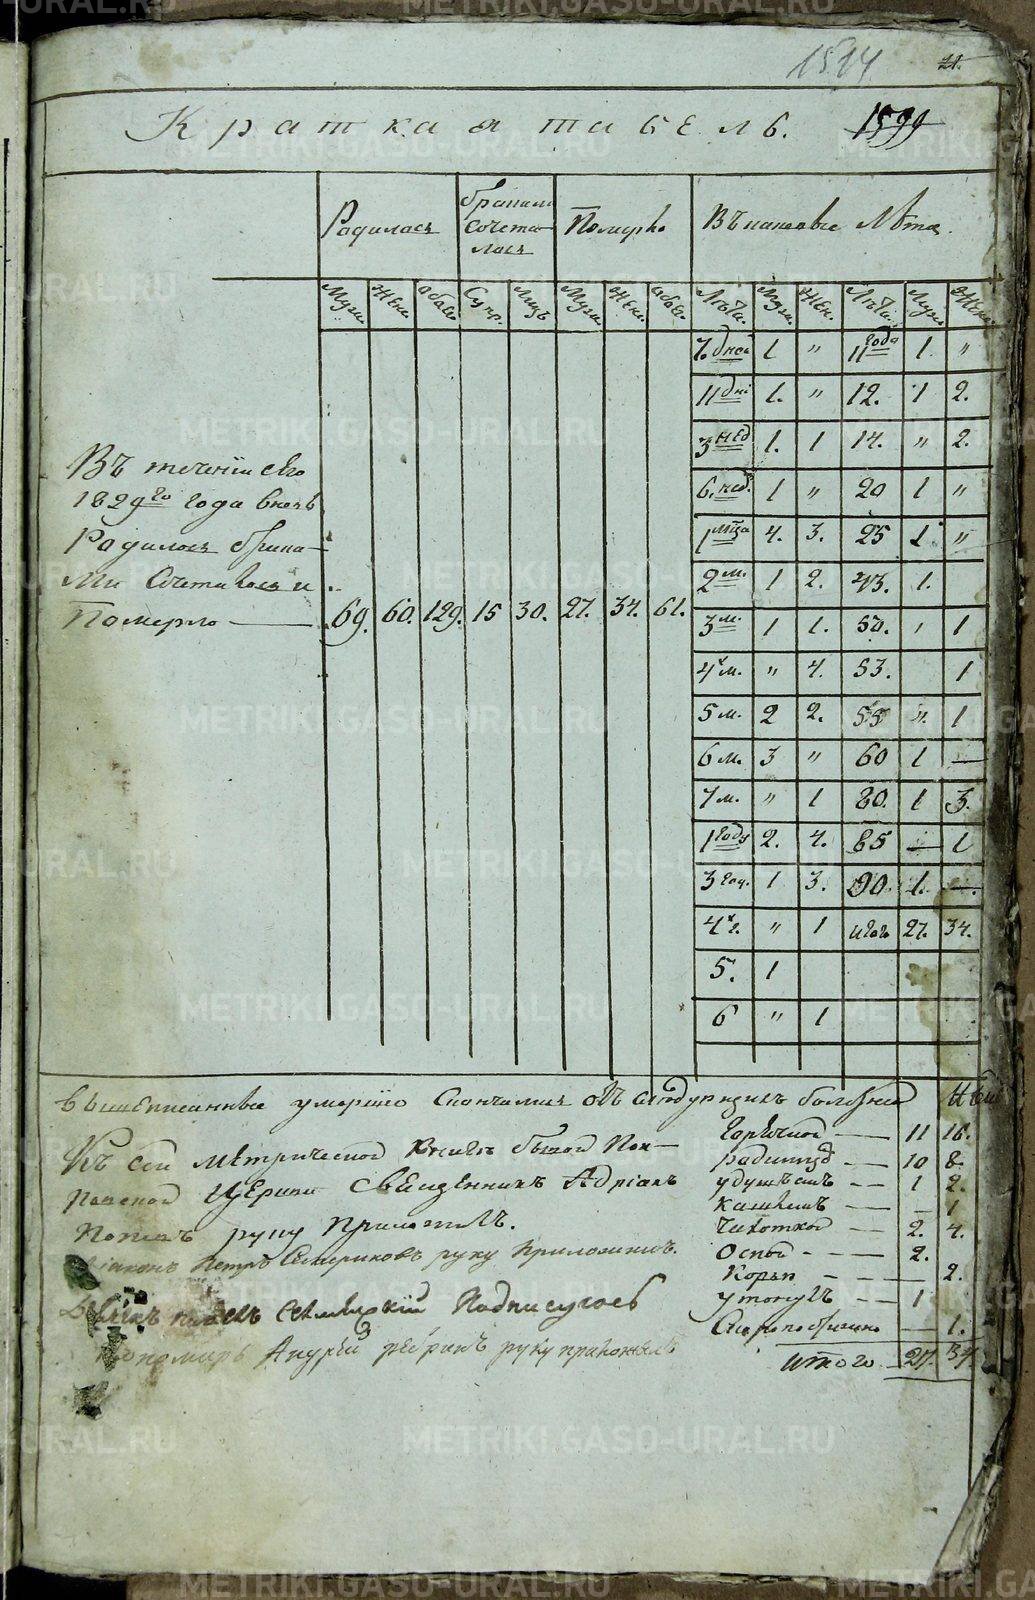 1514
21.
Краткая табель. 1599
Родилось
браками сочеталось
Померло
Въ каковые Лѣта
Муж. Жен. обоего. Супр. Лицъ Муж. Жен. обоего. Лѣта. Муж. Жен. Лѣта. Муж. Жен.
7. дней 1 " 11 года 1. "
11 дні 1. " 12. 1 2.
3 нед 1. 1 14. " 2.
6. нед. 1 " 20 1 "
1 мца 4. 3. 25 1 "
2 м. 1 2. 43. 1.
3 м. 1 1. 50. 1
4 м. " 4. 53. 1
5 м. 2 2. 55 ". 1
6 м. 3 " 60 1 —
7 м. " 1 80. 1 3.
1 году 2. 4. 85 — 1
3 год. 1 3. 90. 1. —.
4 г. " 1 итого 27. 34.
5. 1
6 " 1
Въ теченіи сего
1829го года вновь
Родилось брака-
ми Сочеталось и
Померло — 69. 60. 129. 15 30. 27. 34. 61.
вышеписанные умершіе Скончались отъ следующихъ болезней
Горячкой — 11 16.
родимцо — 10 8
удушьемъ — 1 2.
кашлемъ — 1
Чахоткой — 2. 4.
Оспой — 2.
Корью — 2.
утонулъ — 1
Скоропостижно — 1.
итого 27. 34.
Къ сей Метрической Книгѣ бывшей Пок-
ровской Церкви Священникъ Адріанъ
Поповъ руку Приложилъ.
Діаконъ Петръ руку Приложилъ.
Дьячекъ Подписуюсь
Пономарь Андрей руку приложилъ
METRIKI.GASO-URAL.RU